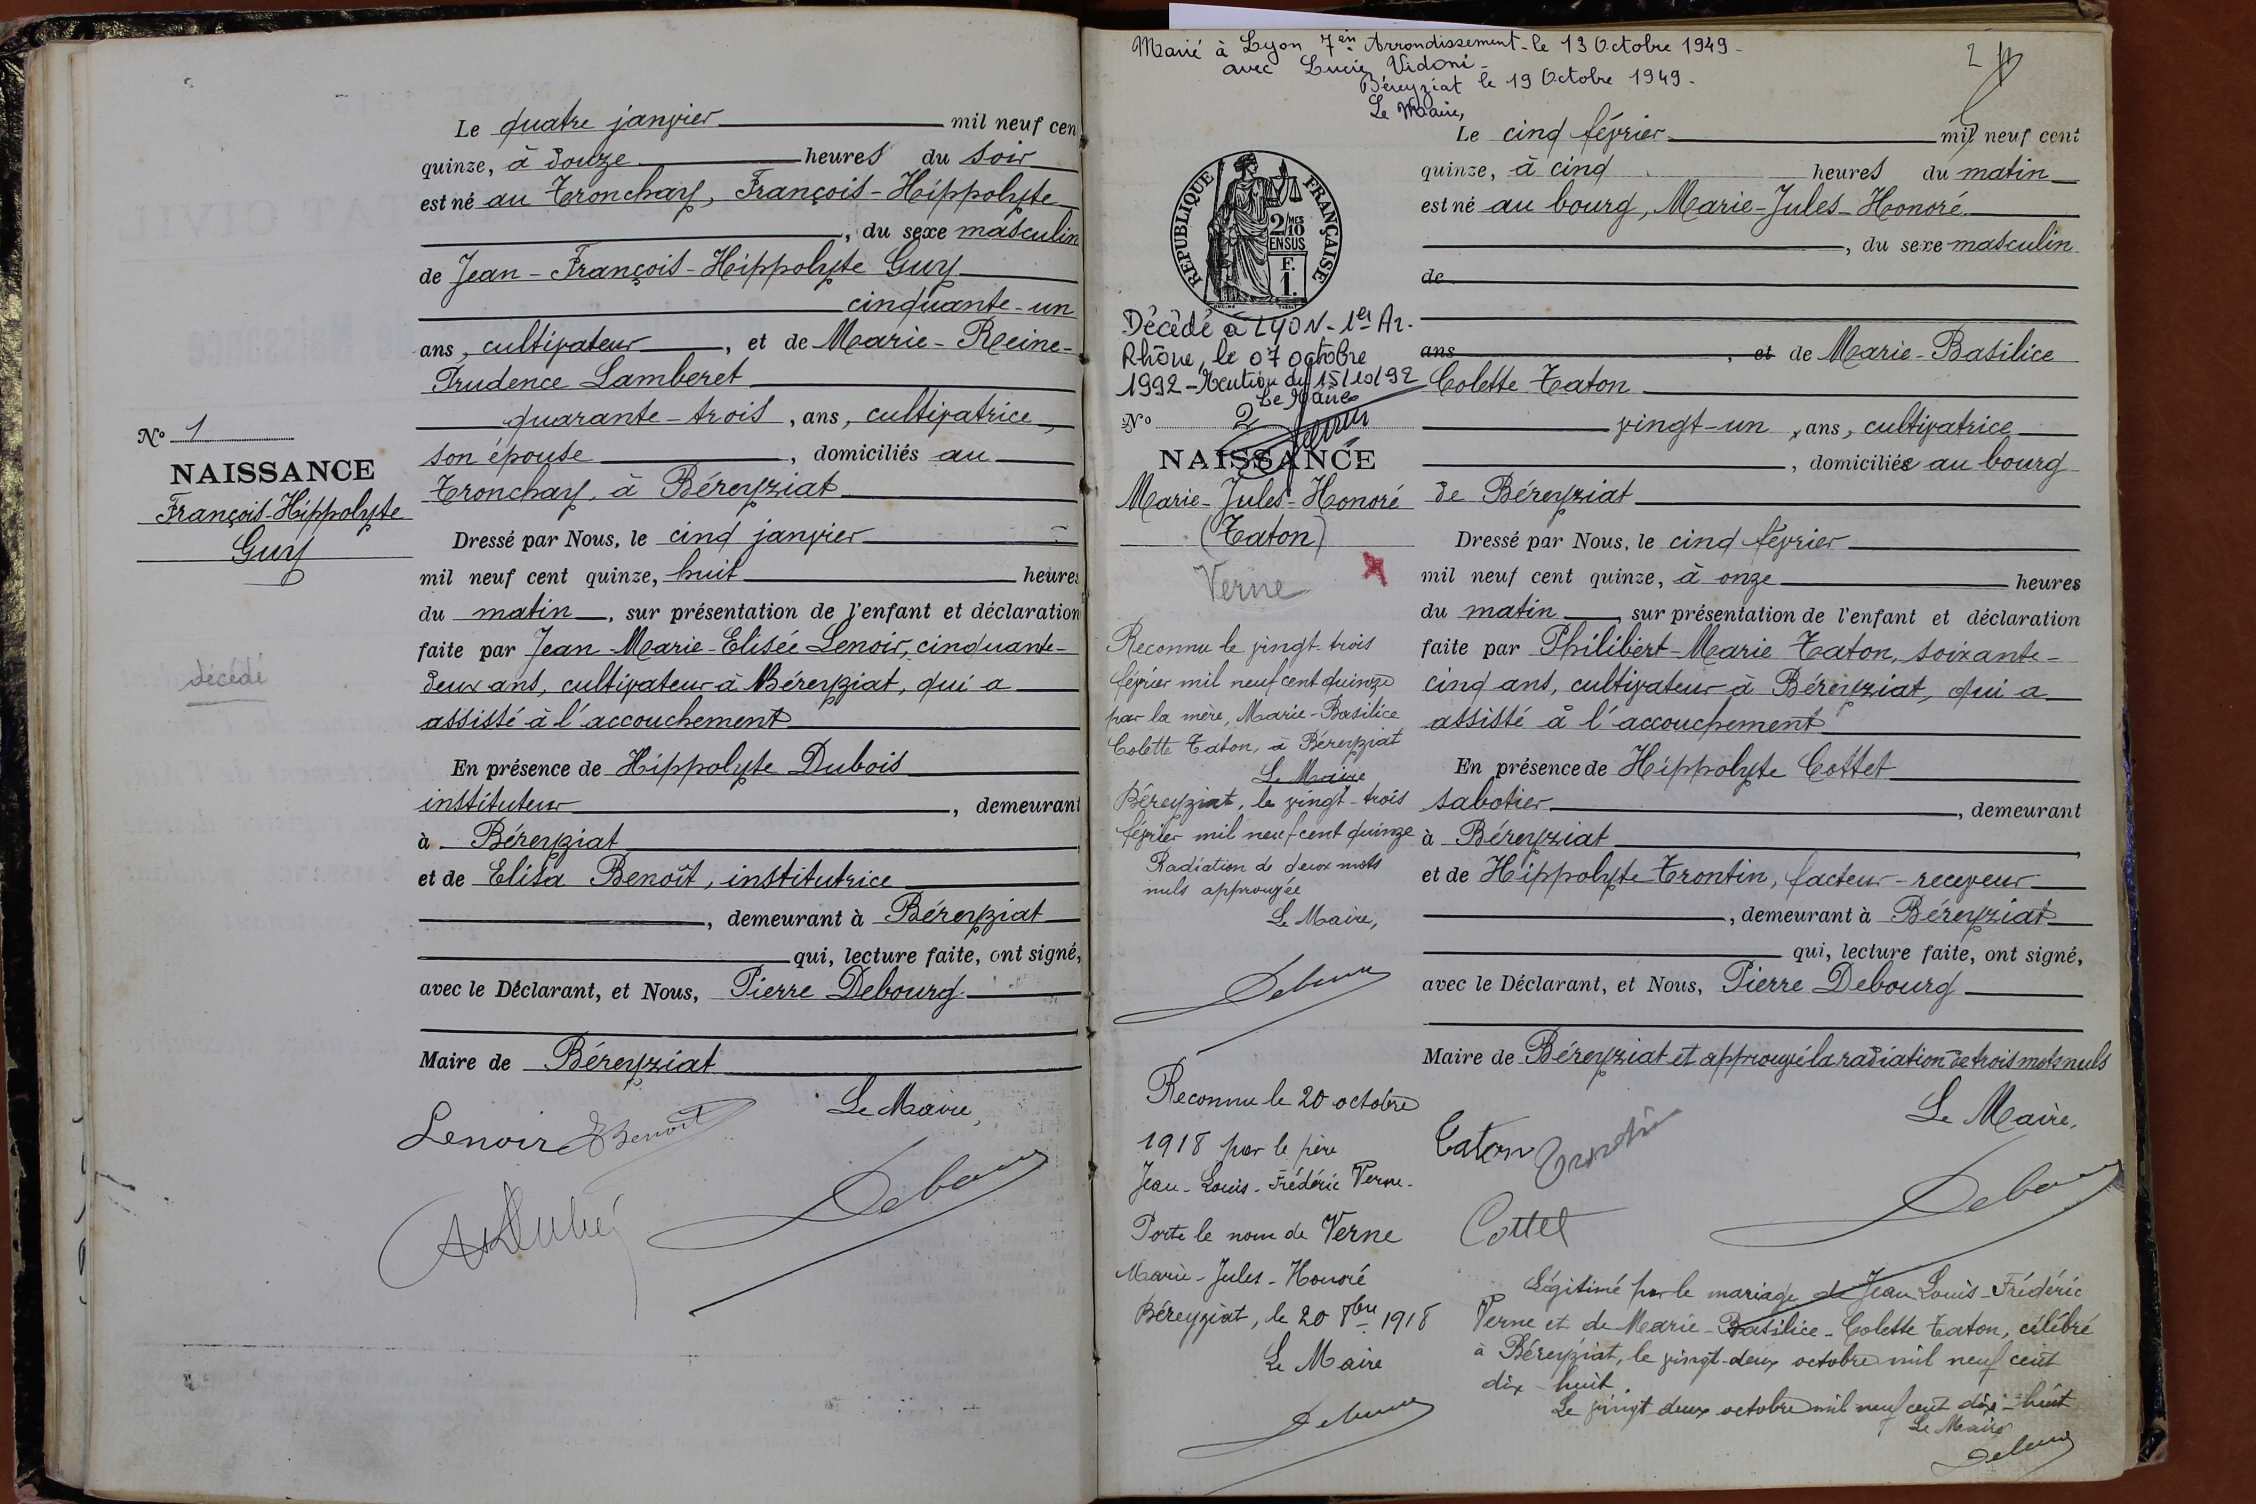 Le quatre janvier mil neuf cen
quinze, à douze heures du soir
est né au Tronchay, François-Hippolyte
, du sexe masculin
de Jean-François-Hippolyte Guy
cinquante-un
ans, cultivateur, et de Marie-Reine-
Prudence Lamberet
quarante-trois, ans, cultivatrice,
son épouse, domiciliés au
Tronchay, à Béreyziat
N° 1
NAISSANCE
François-Hippolyte
Guy
décédé
Dressé par Nous, le cinq janvier
mil neuf cent quinze, huit heures
du matin, sur présentation de l'enfant et déclaration
faite par Jean-Marie-Elisée Lenoir, cinquante-
deux ans, cultivateur à Béreyziat, qui a
assisté à l'accouchement
En présence de Hippolyte Dubois
instituteur, demeurant
à Béreyziat
et de Elisa Benoît, institutrice
, demeurant à Béreyziat
qui, lecture faite, ont signé,
avec le Déclarant, et Nous, Pierre Debourg
Maire de Béreyziat
Le Maire,
Lenoir EBenoît
Marié à Lyon 7em Arrondissement-le 13 Octobre 1949-
avec Lucie Vidoni-
Béreyziat le 19 Octobre 1949-
Le Maire,
2
RÉPUBLIQUE FRANÇAISE
2/10 MES
EN SUS
E.
1.
Décédé à LYON-1er Ar.
Rhône, le 07 octobre
1992-Mention du 15/10/92
Le Maire
N° 2
NAISSANCE
Marie-Jules-Honoré
(Taton)
Verne
Reconnu le vingt-trois
février mil neuf cent quinze
par la mère, Marie-Basilice
Colette Taton, à Béreyziat
Le Maire
Béreyziat, le vingt-trois
février mil neuf cent quinze
Radiation de deux mots
nuls approuvée
Le Maire,
Reconnu le 20 octobre
1918 par le père
Jean-Louis-Frédéric Verne-
Porte le nom de Verne
Marie-Jules-Honoré
Béreyziat, le 20 8bre 1918
Le Maire
Le cinq février mil neuf cent
quinze, à cinq heures du matin
est né au bourg, Marie-Jules-Honoré
, du sexe masculin
de
ans, et de Marie-Basilice
Colette Taton
vingt-un, ans, cultivatrice
, domiciliée au bourg
de Béreyziat
Dressé par Nous, le cinq février
mil neuf cent quinze, à onze heures
du matin, sur présentation de l'enfant et déclaration
faite par Philibert-Marie Taton, soixante-
cinq ans, cultivateur à Béreyziat, qui a
assisté à l'accouchement
En présence de Hippolyte Cottet
sabotier, demeurant
à Béreyziat
et de Hippolyte Trontin, facteur-receveur
, demeurant à Béreyziat
qui, lecture faite, ont signé,
avec le Déclarant, et Nous, Pierre Debourg
Maire de Béreyziat et approuvé la radiation de trois mots nuls
Le Maire,
Taton Trontin
Cottet
Légitimé par le mariage de Jean Louis-Frédéric
Verne et de Marie-Basilice-Colette Taton, célébré
à Béreyziat, le vingt-deux octobre mil neuf cent
dix-huit.
Le vingt deux octobre mil neuf cent dix-huit
Le Maire